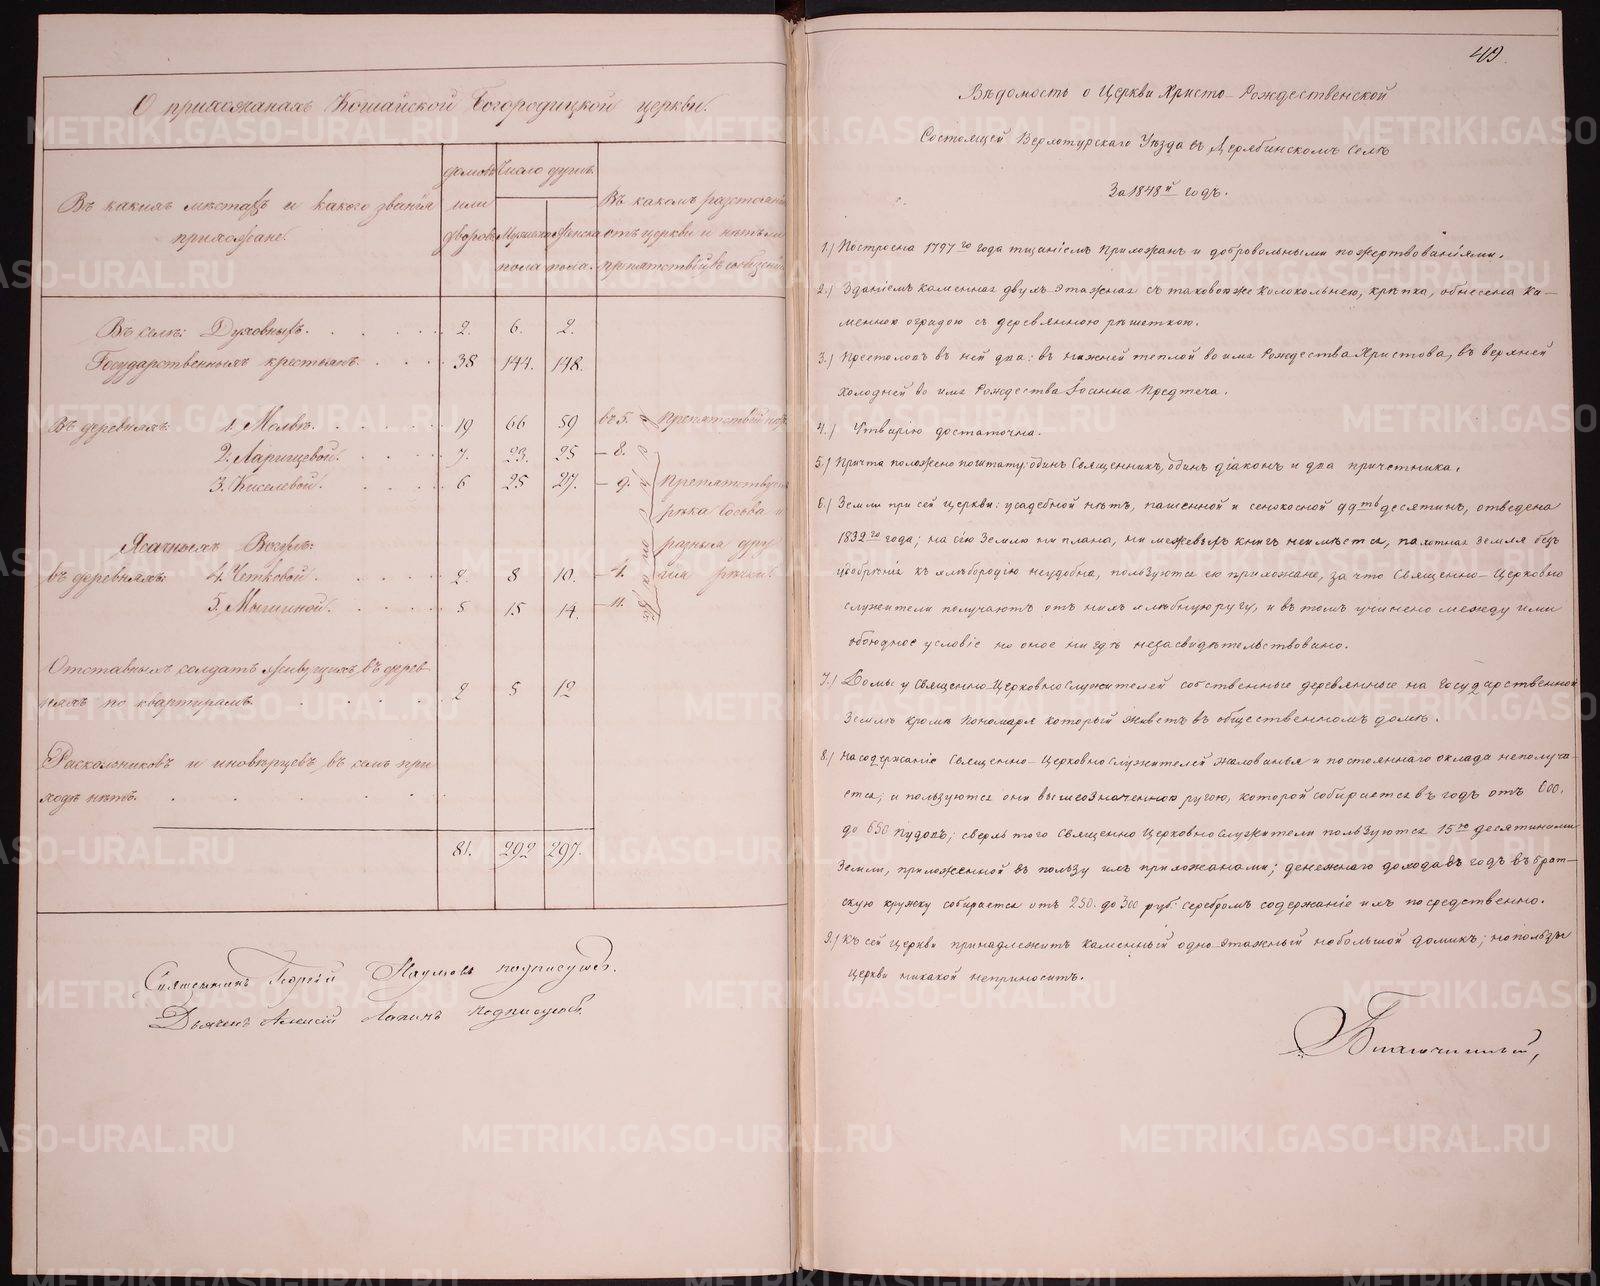 О прихожанахъ Кошайской Богородицкой церкви.
Въ какихъ мѣстахъ и какого званія прихожане.
домовъ или дворовъ
Число душъ.
Мужеска пола
Женска пола.
Въ какомъ разстояніи отъ церкви и нѣтъ ли препятствій въ сообщеніи
Въ селѣ: Духовныхъ. 2. 6. 2.
Государственныхъ крестьянъ. 38 144. 148.
Въ деревняхъ: 1. Молвѣ. 19 66 59 въ 5. Препятствій нѣтъ
2. Ларищевой. 7. 23. 25 — 8.
3. Киселевой. 6 25 27. — 9. Препятствуетъ
рѣка Сосьва и
Ясачныхъ Вогулъ: разныя дру
въ деревняхъ: 4. Четковой. 2. 8 10. — 4. гія рѣчки
5. Мышиной. 5 15 14. — 11.
Отставныхъ солдатъ живущихъ въ дерев-
няхъ по квартирамъ. 2 5 12
Раскольниковъ и иновѣрцевъ, въ семъ при
ходѣ нѣтъ.
81. 292 297.
Священникъ Георгій Наумовъ подписуюсь.
Дьячекъ Алексій Лапинъ подписуюсь.
49.
Вѣдомость о Церкви Христо-Рождественской
Состоящей Верхотурскаго Уѣзда въ Дерябинскомъ Селѣ
За 1848й годъ.
1.) Построена 1797го года тщаніемъ прихожанъ и добровольными пожертвованіями.
2.) Зданіемъ каменная двухъ этажная съ таковою же колокольнею, крѣпка, обнесена ка-
менною оградою съ деревянною рѣшеткою.
3.) Престоловъ въ ней два: въ нижней теплой во имя Рождества Христова, въ верхней
холодней во имя Рождества Іоанна Предтеча.
4.) Утварію достаточна.
5.) Причта положено по штату: одинъ Священникъ, одинъ діаконъ и два причетника.
6.) Земли при сей церкви: усадебной нѣтъ, пашенной и сенокосной десятинъ, отведена
1832го года; на сію землю ни плана, ни межевыхъ книгъ неимѣется, пахотная земля безъ
удобренія къ хлѣбородію неудобна, пользуются ею прихожане, за что Священно-Церковно
служители получаютъ отъ нихъ хлѣбную ругу, и въ томъ учинено между ими
обоюдное условіе но оное ни гдѣ незасвидѣтельствовано.
7.) Домы у Священно-Церковно Служителей собственные деревянные на государственной
Землѣ кромѣ пономаря который живетъ въ общественномъ домѣ.
8.) На содержаніе Священно-Церковно Служителей жалованья и постояннаго оклада неполуча-
ется; и пользуются они вышеозначенною ругою, которой собирается въ годъ отъ 600.
до 650 пудовъ; сверхъ того Священно Церковно Служители пользуются 15ю десятинами
Земли, приложенной въ пользу ихъ прихожанами; денежнаго дохода въ годъ въ брат-
скую кружку собирается отъ 250. до 300 руб: серебромъ содержаніе ихъ посредственно.
9.) Къ сей Церкви принадлежитъ каменный одно-этажный небольшой домикъ; но пользы
Церкви никакой неприноситъ.
Благочинный,
METRIKI.GASO-URAL.RU